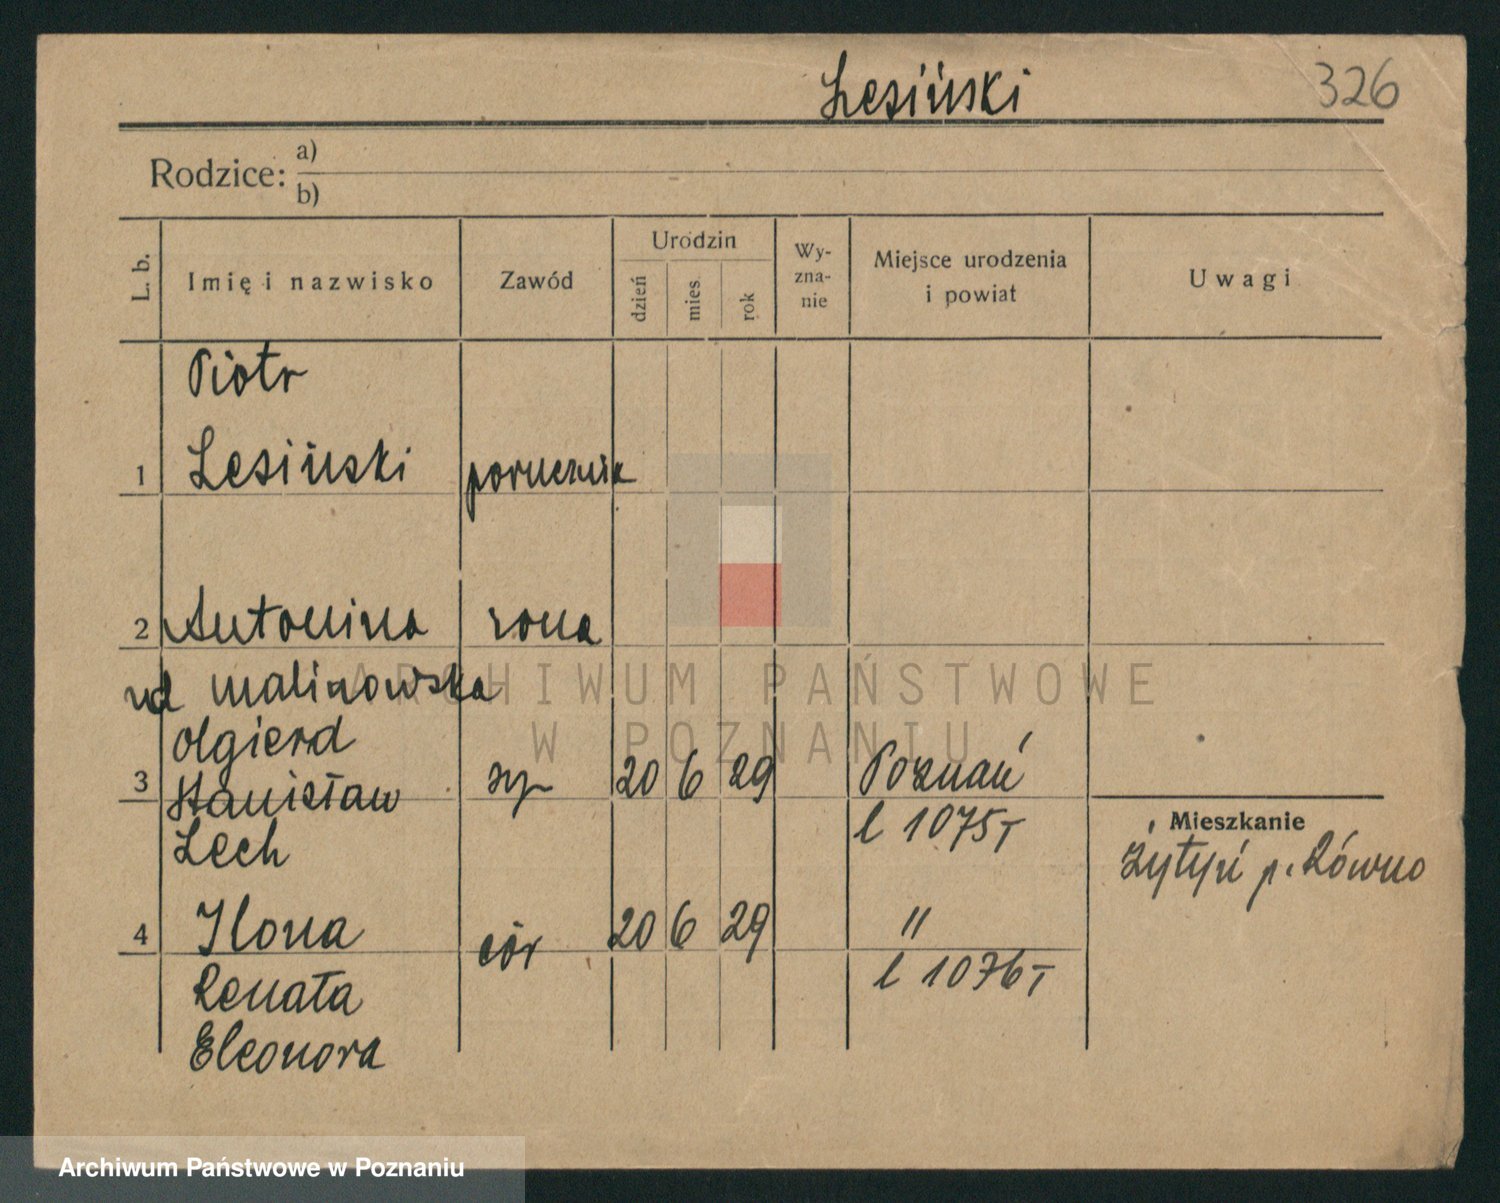 Lesiński
326
Rodzice:
a)
b)
L. b.
Imię i nazwisko
Zawód
Urodzin
dzień
mies.
rok
Wy-
zna-
nie
Miejsce urodzenia
i powiat
Uwagi
Piotr
1 Lesiński porucznik
2 Antonina żona
malinowska
Olgierd
3 Stanisław syn 20 6 29 Poznań
Lech l 1075T
Mieszkanie
Żytyń p. Równo
4 Ilona cór 20 6 29 "
Renata l 1076T
Eleonora
ARCHIWUM PAŃSTWOWE
W POZNANIU
Archiwum Państwowe w Poznaniu